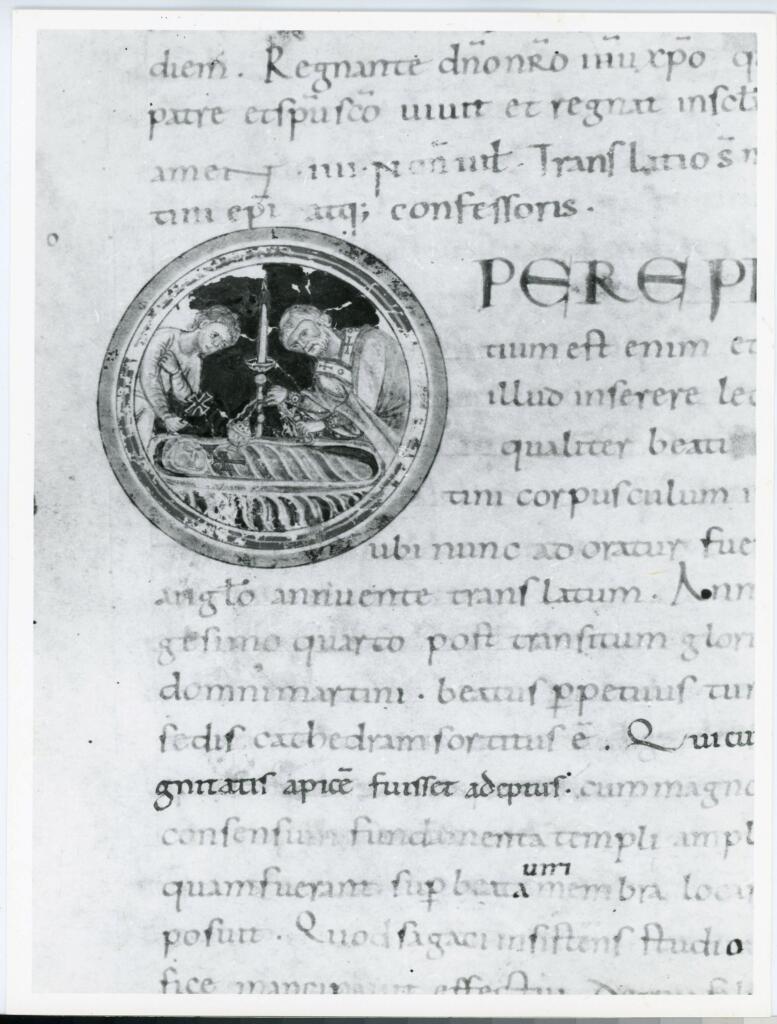 diem . Regnante dn̄o nr̄o ihu xp̄o q
patre et sp̄u sc̄o uiuit et regnat in sc̄la
amen . iiii . Non̄ iul . Translatio s̄
tini ep̄i atq; confessoris .
PERE P
tium est enim et
illud inserere lec
qualiter beati
tini corpusculum
ubi nunc adoratur fue
anglo annuente translatum . Ann
gesimo quarto post transitum glori
domni martini . beatus ꝑpetuus tur
sedis cathedram sortitus ē . Quicu
gnitatis apicē fuisset adeptus ; cum magno
consensium fundamenta templi ampl
um
quam fuerant suꝑ beata membra locar
posuit . Quod sagaci insistens studio
fice mancipauit effectui